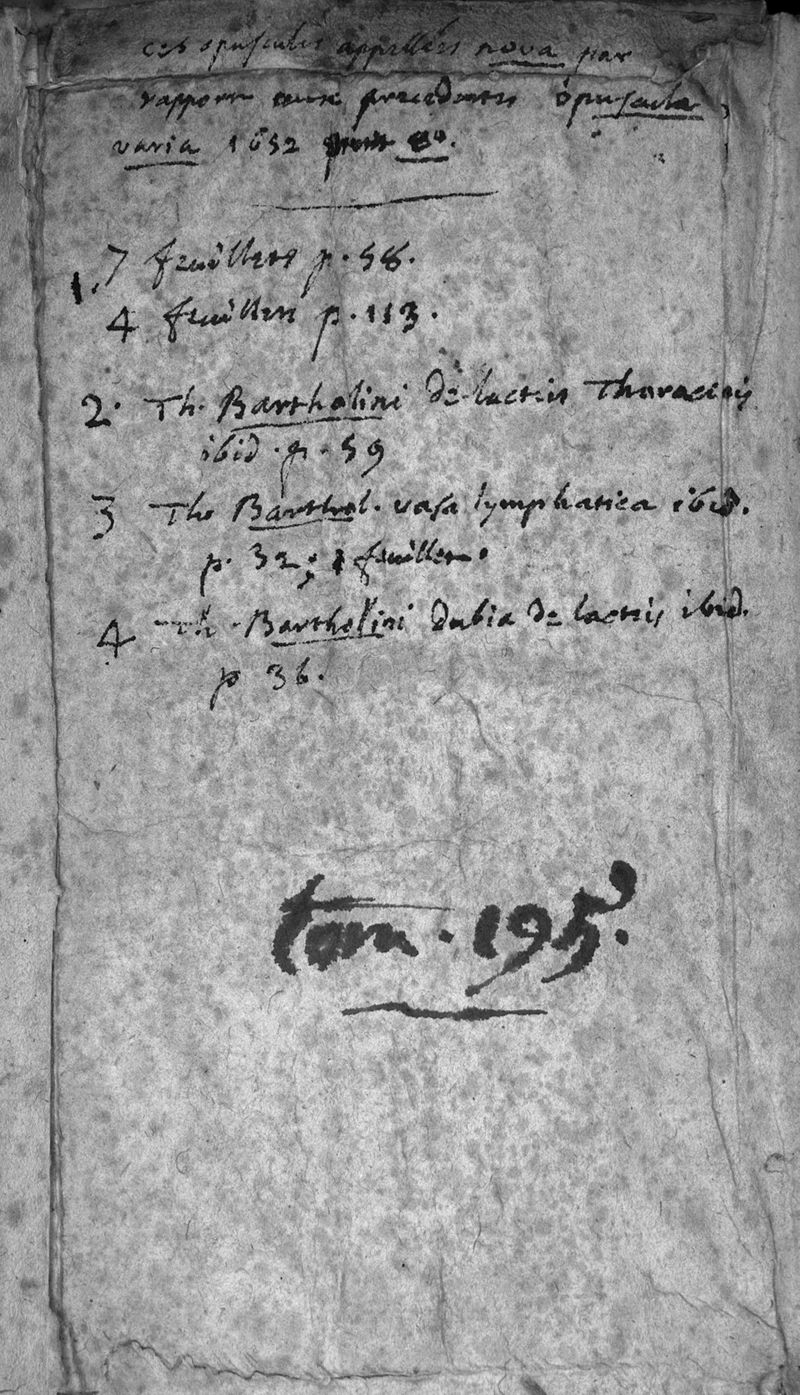 ces opuscules appellées nova par
rapport aux precedentes opuscula
varia 1652 80.
1. 7 feuillets p. 58.
4 feuillets p. 113.
2. Th. Bartholini de lacteis Thoracicis
ibid. p. 59
3 Tho Barthol. vasa lymphatica ibid.
p. 32; 1 feuillet.
4 Th. Bartholini dubia de lacteis ibid.
p 36.
tom. 195.